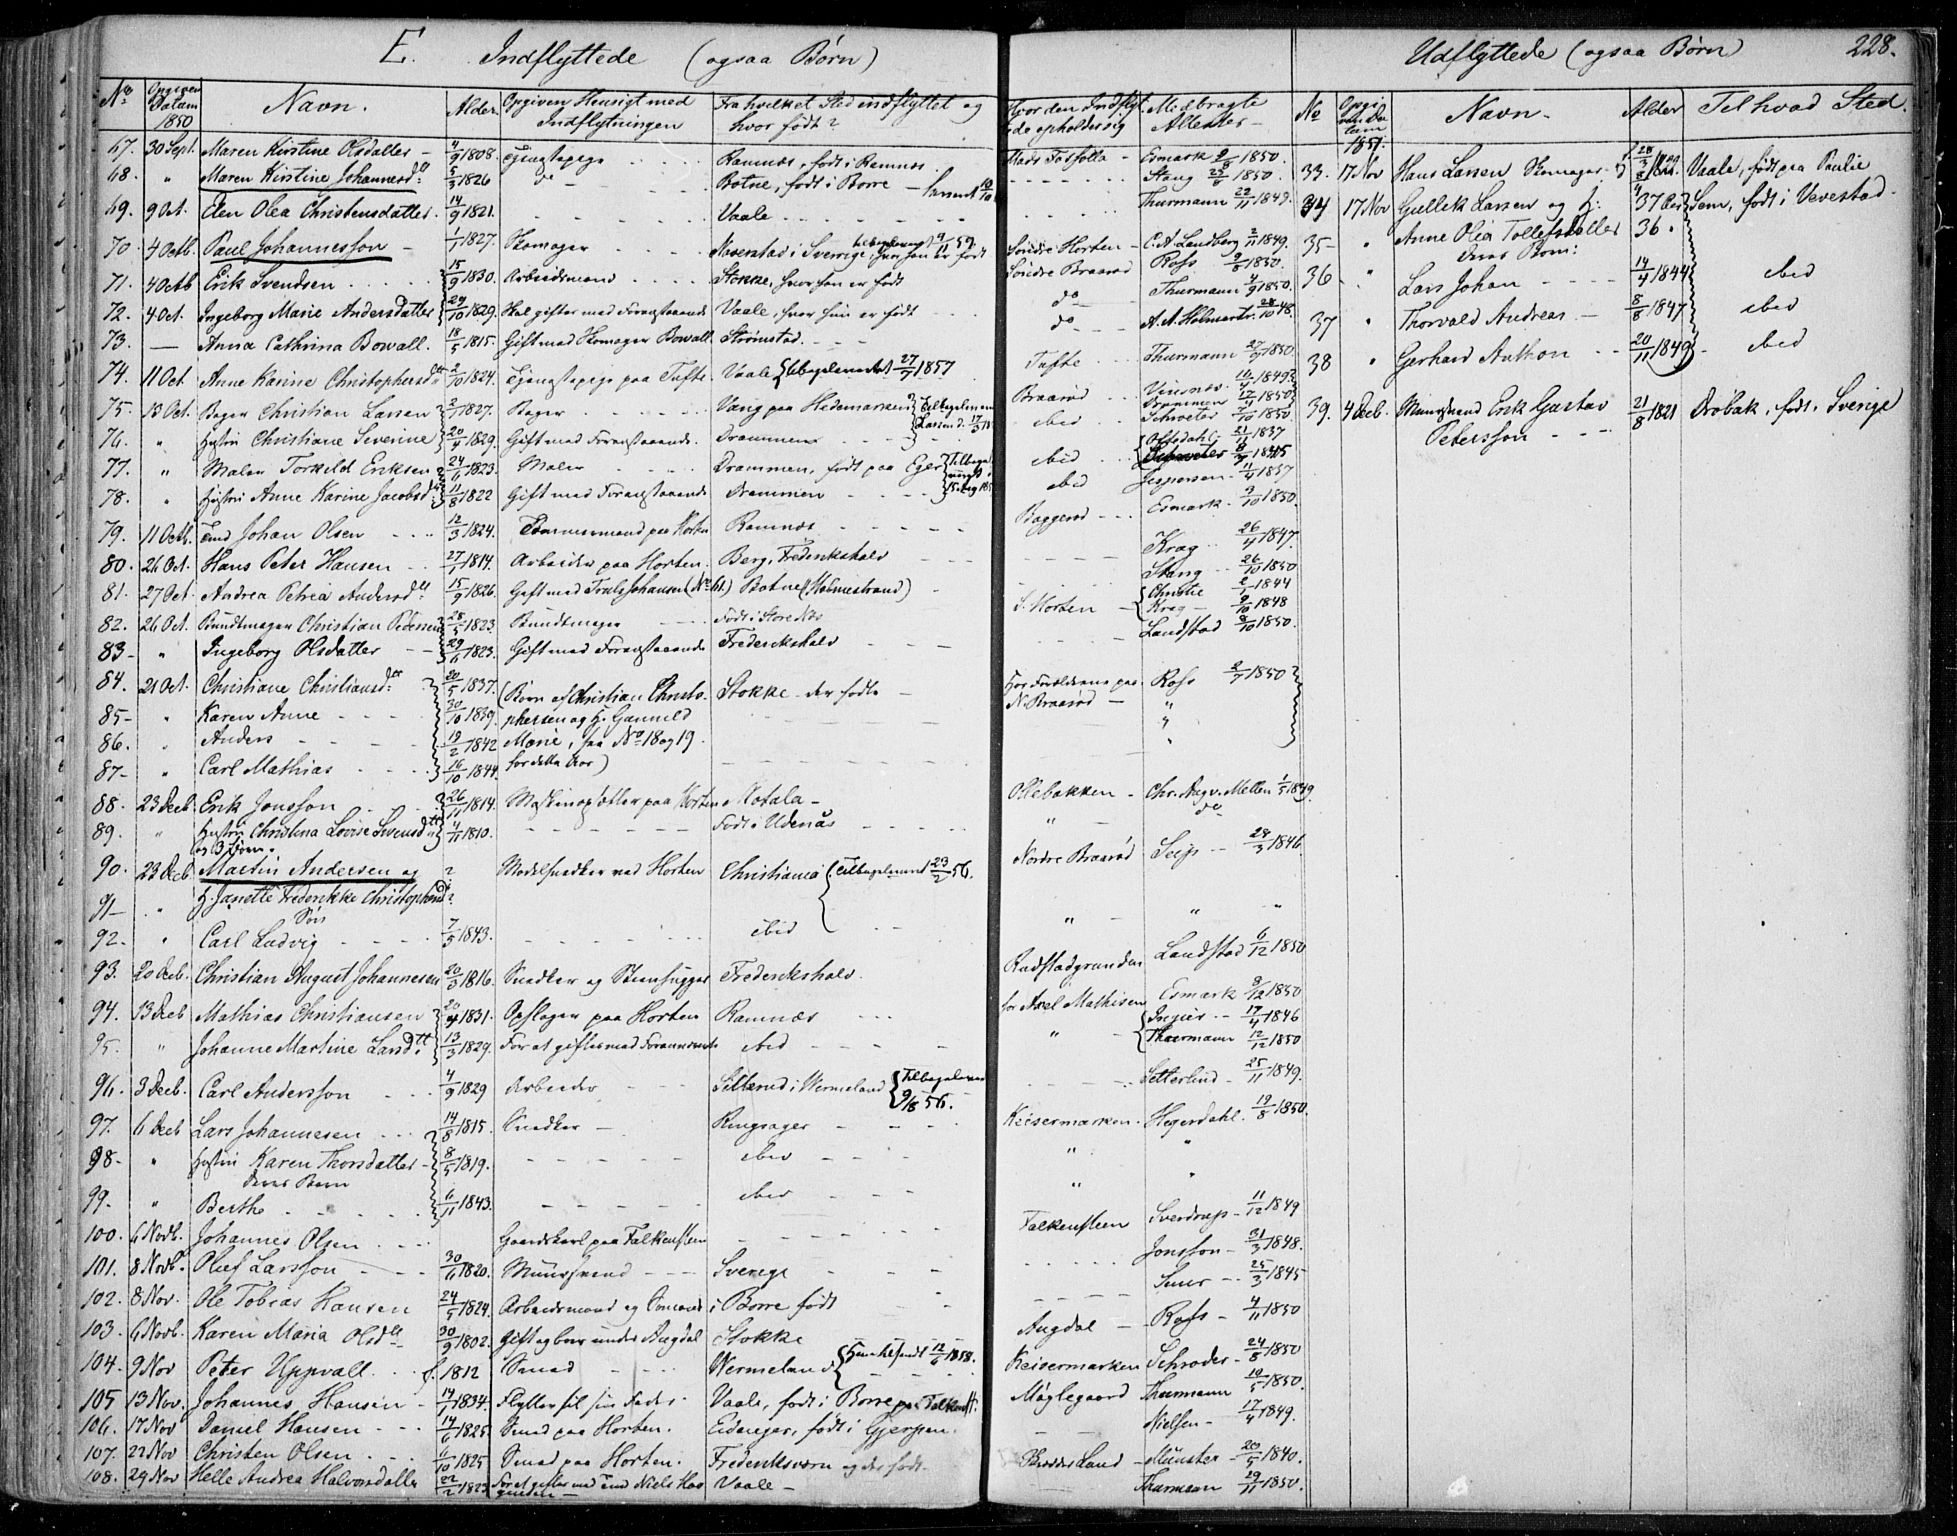 E. Indflyttede (ogsaa Børn)
No Opgiven Datum 1850 Navn. Alder. Opgiven Hensigt med Indflytningen Fra hvilket Sted indflyttet og hvor født? Hvor den Indflyt.de opholder sig Medbragte Attester
67. 30 Sept. Maren Kirstine Olsdatter - 4/9 1808. Tjenestepige Ramnes, født i Ramnes. Mads Fosfolla - Esmark 9/8 1850.
68. " Maren Kirstine Johannesd. 5/3 1826 do - Botne, født i Borre - Stang 1850.
69. 9 Oct. Elen Olea Christensdatter. 14/9 1821. Vaale Thurmann 22/11 1849.
70. 4 Octb. Paul Johannesson - 1/1 1827. Skomager Naverstad i Sverige, hvor han er født Søndre Horten - C. A. Landberg 2/11 1849.
71. 4 Octb Erik Svendsen 15/9 1830. Arbeidsmand Stokke, hvor han er født Søndre Braarød Ross 9/8 1850.
72. 4 Oct. Ingeborg Marie Andersdatter 29/10 1829. Skal giftes med Foranstaaende Vaale, hvor hun er født do Thurmann 4/9 1850.
73. — Anna Cathrina Bowall. 18/5 1815. Gift med Skomager Bowall Strømstad. do A. A. Holmertz. 28/10 48.
74. 11 Oct Anne Karine Christophersd. 2/10 1824. Tjenestepige paa Tufte. Vaale (tilbageleveret 27/7 1857 Tufte Thurmann 27/9 1850.
75. 13 Oct. Bager Christian Larsen 2/1 1827. Bager Vang paa Hedemarken Braarød 1849
76. " Hustru Christiane Severine 20/9 1829. Gift med Foranstaaende. Drammen ibid Schroeter 1850
77. " Maler Torkild Eriksen 24/6 1823. Maler Drammen, født paa Eger ibid Oftedahl 21/11 1837
78. " Hustru Anne Karine Jacobsd. 11/8 1822 Gift med Foranstaaende Drammen ibid Jespersen 11/4 1837
79. 11 Octb. Tmd Johan Olsen 12/3 1824. Tømmermand paa Horten Ramnæs Baggerød Esmark 3/10 1850.
80. 26 Oct. Hans Peter Hansen 27/1 1814. Arbeider paa Horten. Berg, Frederikshald Krag 26/4 1847.
81. 27 Oct. Andrea Petrea Andersd. 15/9 1826. Gift med Truls Johansen (No 61.) Botne (Holmestrand) Stang 26/10 1850
82. 26 Oct. Bundtmager Christian Pedersen 28/5 1823. Bundtmager Født i Storedks S. Horten Christie 2/1 1844 Krag 9/10 1848
83 - " Ingeborg Olsdatter 29/6 1823. Gift med Foranstaaende Frederikshald Landstad 8/10 1850.
84. 21 Oct. Christiane Christiansd. 20/5 1837. (Børn af Christian Christo- Stokke - der fødte Hos Forældrene paa Ross 2/7 1850
85 - " Karen Anne 30/10 1839. phersen og H. Gunnild N. Braarød - "
86. " Anders 19/2 1842 Marie, paa No 18 og 19. "
87 - " Carl Mathias 16/10 1844. for dette Aar)
88. 23 Decb. Erik Jonsson 26/11 1814. Maskinopsætter paa Horten Motala - Ollebakken - Chr. Aug. v. Mellen 1/5 1849.
89. " Hustru Christina Lovise Svensd. 4/11 1810. Født i Udenås " do
og 3 Børn.
90. 23 Decb Martin Andersen og ? Modelsnedker ved Horten Christiania (Tilbageleveret 23/2 56. Nordre Braarød Seip 28/3 1846.
91 - " H. Janette Frederikke Christophersd. ? " "
Søn
92. " Carl Ludvig 7/5 1843. ibid
93. 20 Decb. Christian August Johannesen 20/3 1816. Snedker og Steenhugger Frederikshald. Rudstadgrunden Landstad 6/12 1850
94. 13 Decb Mathias Christiansen 20/4 1831. Opslager paa Horten Ramnæs for Axel Mathisen Esmark 9/12 1850
95. " Johanne Martine Larsd. 13/3 1829. For at giftes med Forannevnte ibid " Ingier 17/4 1846 Thurmann 12/12 1850
96. 3 Decb. Carl Andersson 4/9 1829 Arbeider Silberud i Wermeland (Tilbageleveret 9/8 56. Setterlind 25/11 1849.
97. 6 Decb Lars Johannesen 14/8 1815. Snedker - Ringsager Keisermarken. Hegerdahl. 19/8 1850.
98 - " Hustru Karen Thorsdatter 8/5 1819. ibid " "
deres Barn
99. " Berthe 6/11 1843. ibid " "
100. 6 Novb. Johannes Olsen Gaardskarl paa Falkensteen Falkensteen Sverdrup 11/12 1849
101. 8 Novb. Oluf Larsson 30/6 1820. Muursvend Sverige Jonsson 31/3 1848.
102. 8 Nov. Ole Tobias Hansen 24/5 1824. Arbeidsmand og Sømand i Borre født 25/3 1845
103. 6 Novb. Karen Maria Olsd. 30/9 1802. Gift og bor under Augdal Stokke Augdal - Ross 4/11 1850
104. 9 Nov Peter Uppvall f. 1812 Smed Wermeland 12/6 1858. Keisermarken Schroder 24/8 1850
105 13 Nov. Johannes Hansen 14/1 1834. Flytter til sin Fader. Vaale, født i Borre paa Falkenst. Møglegaard Thurmann 10/5 1850.
106. 17 Nov Daniel Hansen 14/6 1825 Smed paa Horten. Eidanger, født i Gjerpen. Nielsen 17/4 1849.
107. 22 Nov Christen Olsen 6/10 1825 Smed paa Horten. Frederiksværn og der født. Münster 20/5 1840.
108. 29 Nov Helle Andrea Halvorsdatter 22/2 1823 For at giftes med Tmd Niels Vaale - Thurmann 29/11 1850.
Udflyttede (ogsaa Børn) 228.
No Opgiven Datum 1851. Navn. Alder Til hvad Sted.
33. 17 Nov Hans Larsen Skomager. 28/3 Vaale, født paa Paulie
34 17 Nov Gullik Larsen og H: 37 Sem, født i Vevestad
35 - " Anne Olea Tollefsdatter 36
deres Børn:
36 " Lars Johan 14/4 1844 ibid
37 " Thorvald Andreas 8/8 1847 ibid
38 " Gerhard Anthon 20/11 1849 ibid
39. 4 Decb. Muursvend Erik Gustav 21/8 1821 Drøbak, født i Sverige
Petersson